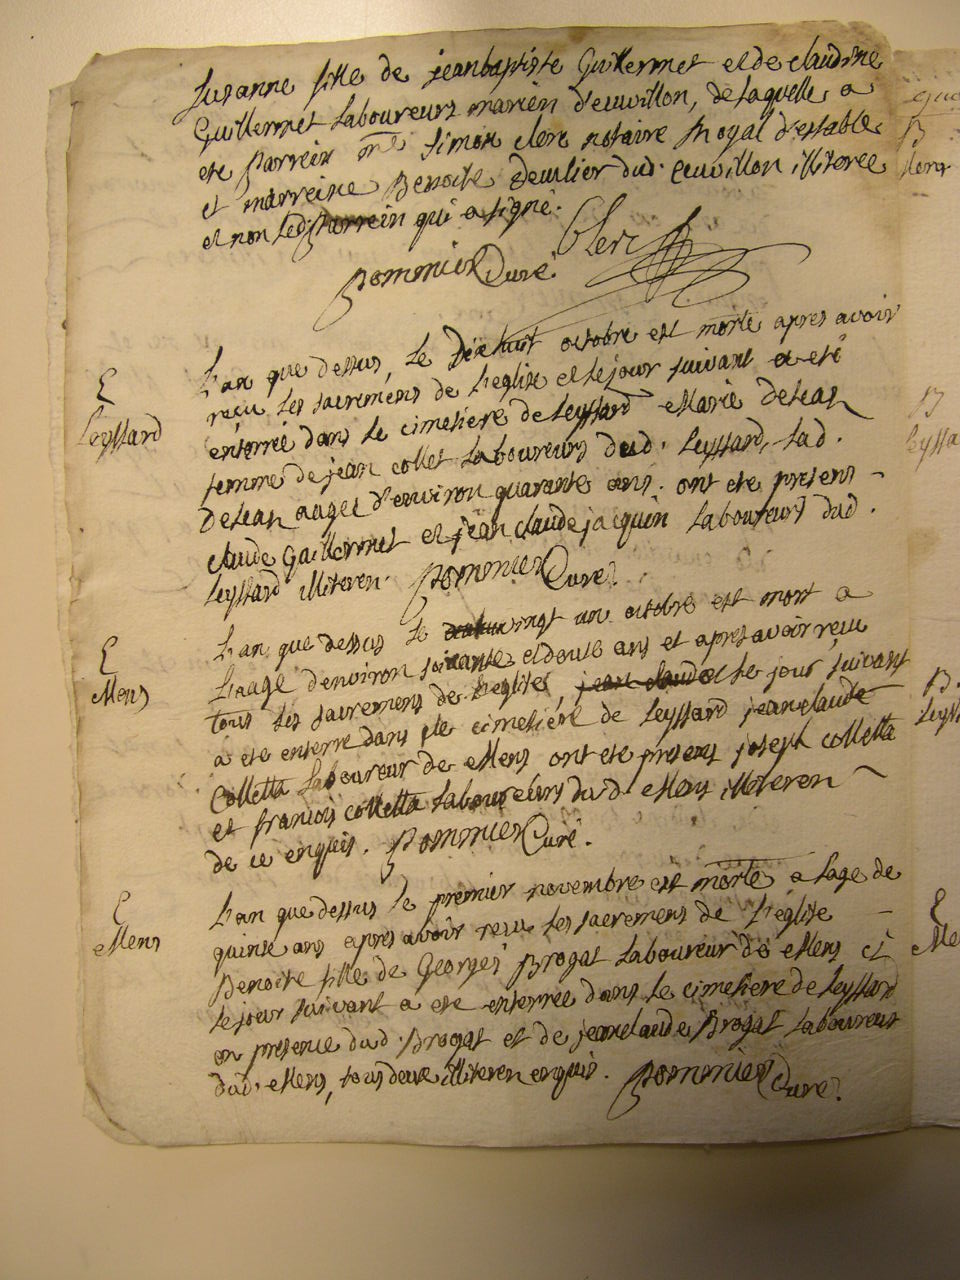 Susanne fille de jeanbaptiste Guillermet et de claudine
Guillermet Laboureurs marién d'euvillon, de laquelle a
ete parrein me Simon clerc notaire Royal d'estables
et marreine Benoite deulier dud. euvillon illiteree
et non led parrein qui a signé.
Clerc
pommier Curé
E
Leyssard
L'an que dessus, le dixhuit octobre est morte apres avoir
recu les sacremens de l'eglise et le jour suivant a eté
enterrée dans le cimetiere de Leyssard Marie delean
femme de jean collet Laboureurs dud. Leyssard, lad.
delean aagee d'environ quarantes ans. ont ete presens
claude Guillermet et jean claude jacquin laboureurs dud.
Leyssard illiteren. pommier Curé.
E
Mens
L'an que dessus le vingt un octobre est mort a
l'aage d'environ soixantes et douse ans et apres avoir recu
tous les sacremens de l'eglise, jean claude et le jour suivant
a ete enterre dans le cimetiére de Leyssard jeanclaude
Colletta laboureur de Mens ont ete presens joseph colletta
et francois colletta laboureurs dud. Mens illiteren
de ce enquis. pommier Curé.
E
Mens
L'an que dessus le premier novembre est morte a l'age de
quinse ans apres avoir recu les sacremens de l'église
Benoite fille de Georges Brogat laboureur de Mens et
le jour suivant a ete enterrée dans le cimetiere de Leyssard
en presence dud. Brogat et de jeanclaude Brogat laboureur
dud. Mens, tous deux illiteren enquis. pommier Curé.
B
B
Leyssa
B.
Leyss
E
Me